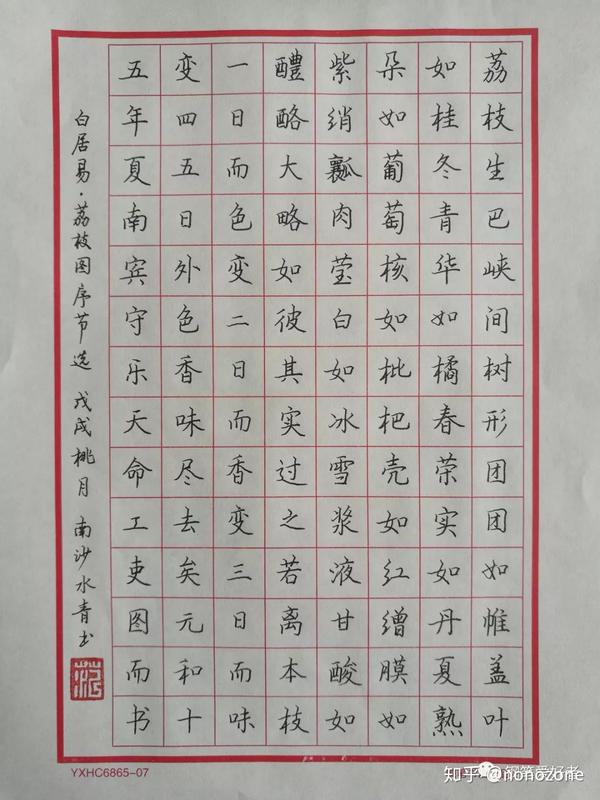 荔枝生巴峡间树形团团如帷盖叶
如桂冬青华如橘春荣实如丹夏熟
朵如葡萄核如枇杷壳如红缯膜如
紫绡瓤肉莹白如冰雪浆液甘酸如
醴酪大略如彼其实过之若离本枝
一日而色变二日而香变三日而味
变四五日外色香味尽去矣元和十
五年夏南宾守乐天命工吏图而书
白居易·荔枝图序节选 戊戌桃月 南沙水青书
YXHC6865-07
钢笔爱好者
知乎 @nonozone